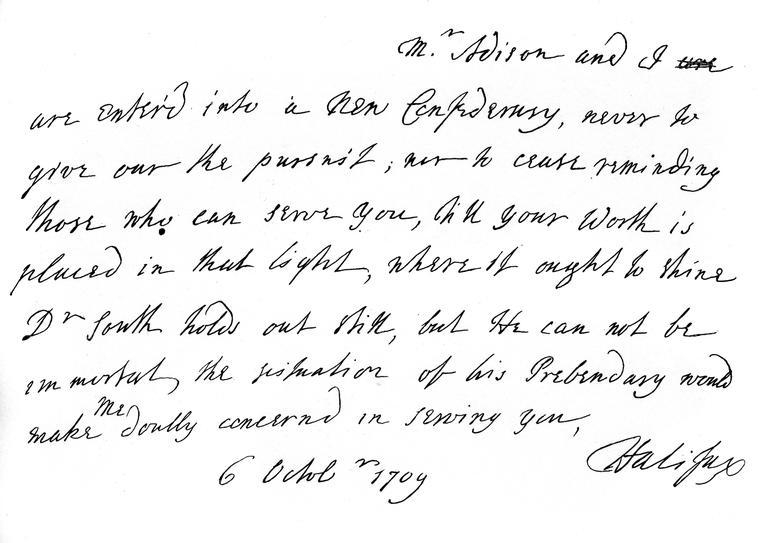 Mr Adison and I
are enter'd into a New Confederacy, never to
give over the pursuit, nor to cease reminding
those who can serve you, till your Worth is
placed in that light, where it ought to shine
Dr South holds out still, but He can not be
immortal, the situation of his Prebendary would
make me doubly concernd in serving you,
Halifax
6 Octobr 1709